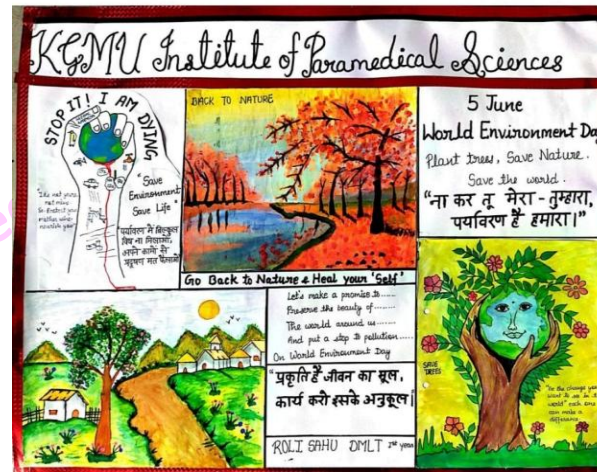 KGMU Institute of Paramedical Sciences
STOP IT! I AM DYING
"Save
Environment
Save Life"
"Its not yours,
not mine
So Protect your
mother who
nourishes you"
पर्यावरण में बिल्कुल
विष ना मिलाओ,
अपने कामों से
प्रदूषण मत फैलाओ
BACK TO NATURE
Go Back to Nature & Heal your 'Self'
5 June
World Environment Day
Plant trees, Save Nature.
Save the world.
"ना कर तू मेरा - तुम्हारा,
पर्यावरण है हमारा।"
Let's make a promise to......
Preserve the beauty of........
The world around us.......
And put a stop to pollution.....
On World Environment Day
"प्रकृति है जीवन का मूल,
कार्य करो इसके अनुकूल।
ROLI SAHU DMLT year
SAVE
TREES
"Be the change you
want to see in the
world" each one
can make a
difference.